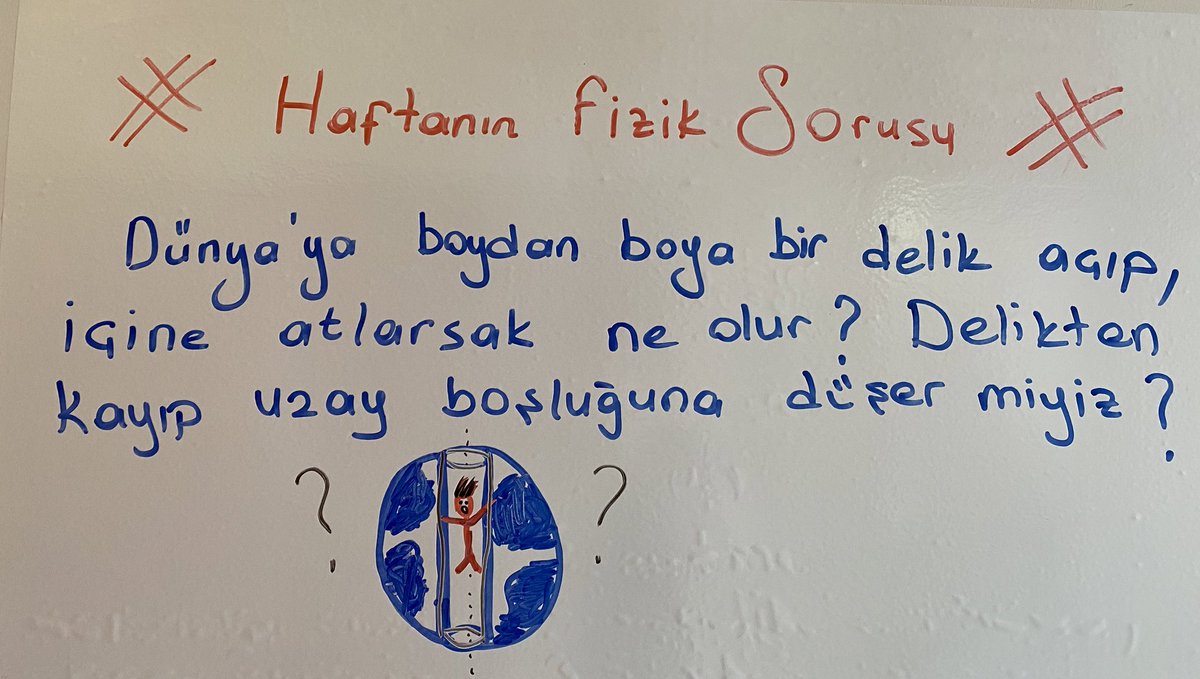 Haftanın Fizik Sorusu
Dünya'ya boydan boya bir delik açıp,
içine atlarsak ne olur? Delikten
kayıp uzay boşluğuna düşer miyiz?
? ?